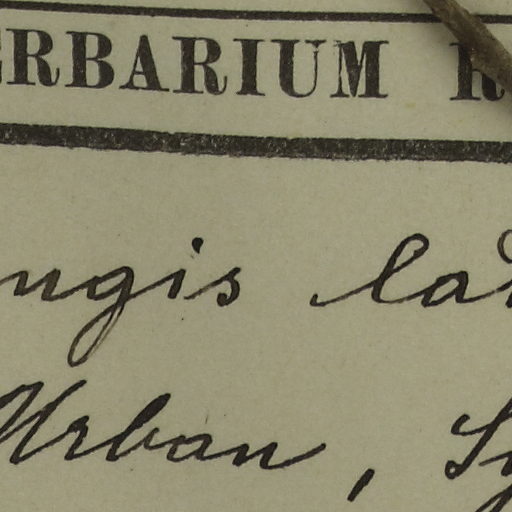 ERBARIUM R
ngis la
Urban, Sy